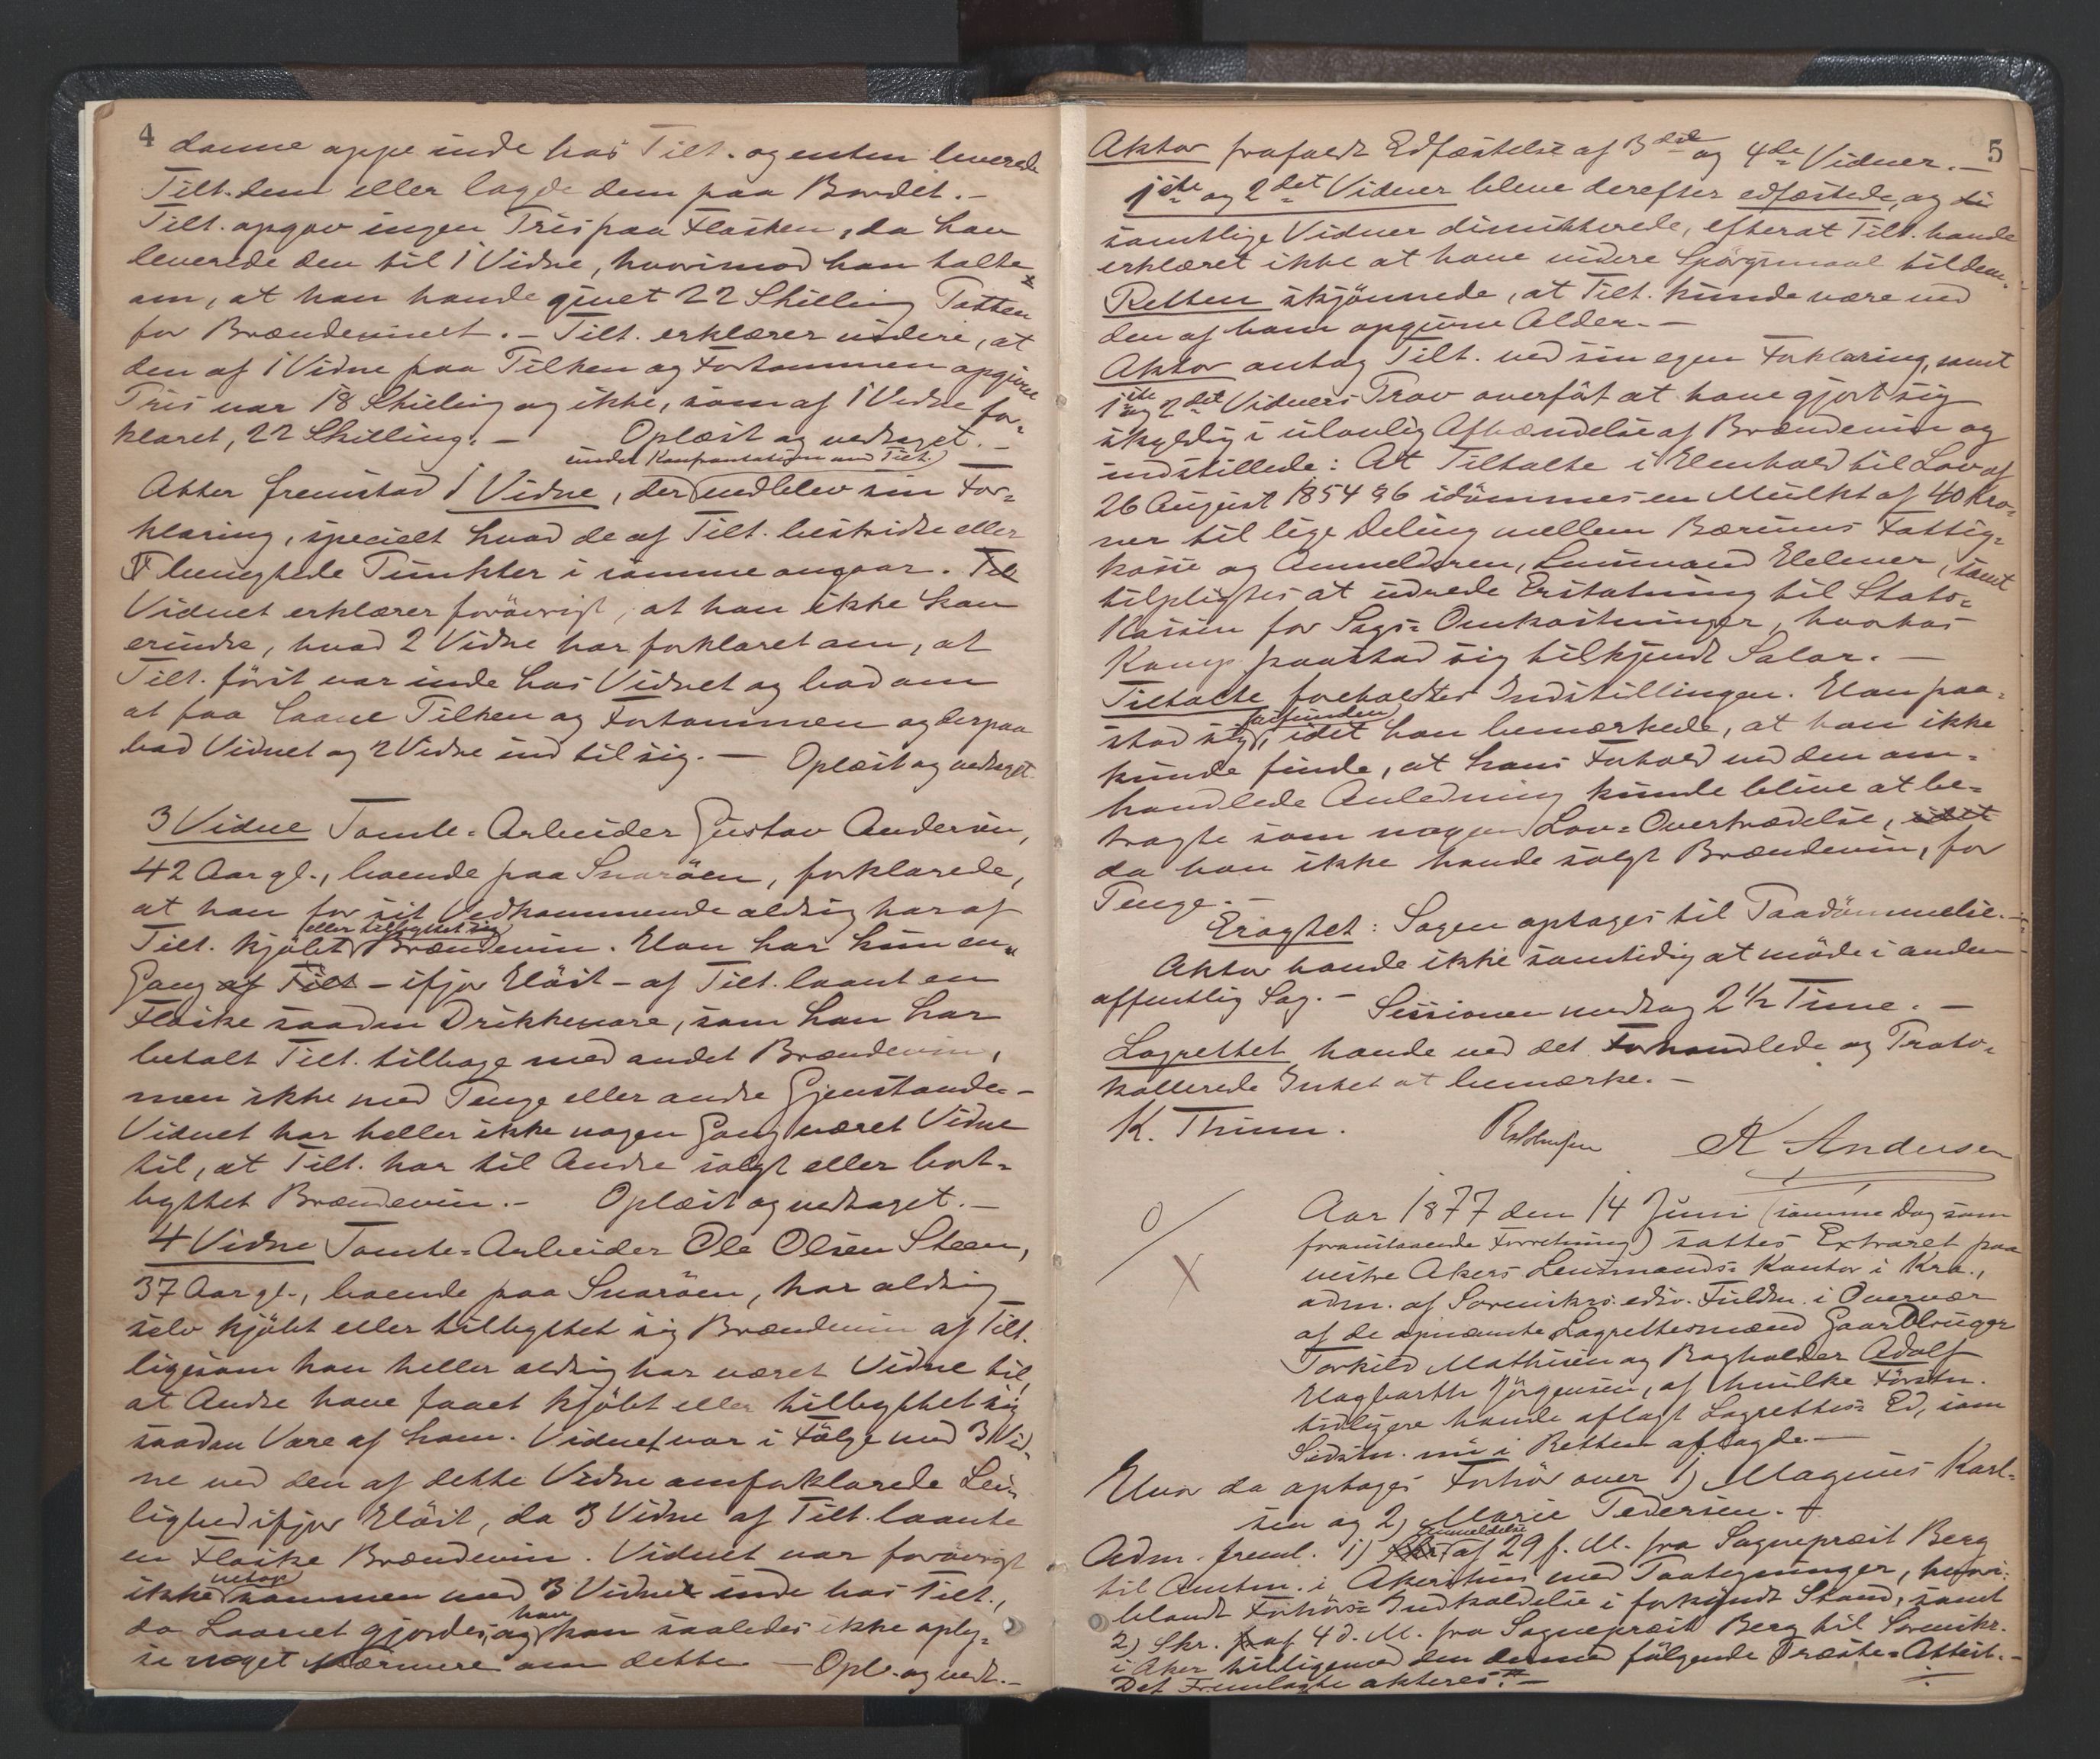 4
danne oppe inde hos Tilt. og enten leverede
Tilt. dem eller lagde dem paa Bordet. –
Tilt. opgav ingen Pris paa Flasken, da han
leverede den til 1 Vidne, hvorimod han talte
om, at han havde givet 22 Skilling Potten
for Brændevinet. – Tilt. erklærer videre, at
den af 1 Vidne paa Pilken og Fortommen opgivne
Pris var 18 Skilling og ikke, som af 1 Vidne for-
klaret, 22 Skilling. – Oplæst og vedtaget. –
under Konfrontation med Tilt.
Atter fremstod 1 Vidne, der vedblev sin For-
klaring, specielt hvad de af Tilt. bestridte eller
benegtede Punkter i samme angaar. Tilt
Vidnet erklærer forøvrigt, at han ikke kan
erindre, hvad 2 Vidne har forklaret om, at
Tilt. først var inde hos Vidnet og bad om
at faa laane Pilken og Fortommen og derpaa
bad Vidnet og 2 Vidne ind til sig. – Oplæst og vedtaget.
3 Vidne Tomte-Arbeider Gustav Andersen,
42 Aar gl., boende paa Snarøen, forklarede,
at han for sit Vedkommende aldrig har af
eller tilbyttet sig
Tilt. kjøbt Brændevin. Han har kun en
Gang af Tilt – ifjor Høst – af Tilt. laant en
Flaske saadan Drikkevare, som han har
betalt Tilt. tilbage med andet Brændevin,
men ikke med Penge eller andre Gjenstande. –
Vidnet har heller ikke nogen Gang været Vidne
til, at Tilt. har til Andre solgt eller bort-
byttet Brændevin. – Oplæst og vedtaget. –
4 Vidne Tomte-Arbeider Ole Olsen Steen,
37 Aar gl., boende paa Snarøen, har aldrig
selv kjøbt eller tilbyttet sig Brændevin af Tilt.
ligesom han heller aldrig har været Vidne til,
at Andre have faaet kjøbt eller tilbyttet sig
saadan Vare af ham. Vidnet var i Følge med 3 Vid-
ne ved den af dette Vidne omforklarede Lei-
lighed ifjor Høst, da 3 Vidne af Tilt. laante
en Flaske Brændevin. Vidnet var forøvrigt
netop
ikke sammen med 3 Vidnet inde hos Tilt.,
han
da Laanet gjordes, og kan saaledes ikke oply-
se noget Nærmere om dette – Opl. og vedt. –
5
Aktor frafaldt Edfæstelse af 3die og 4de Vidner. –
1ste og 2det Vidner bleve derefter edfæstede, og de
samtlige Vidner dimitterede, efterat Tilt. havde
erklæret ikke at have videre Spørgsmaal til dem.
Retten skjønnede, at Tilt. kunde være ved
den af ham opgivne Alder. –
Aktor antog Tilt. ved sin egen Forklaring, samt
1ste og 2det Vidners Prov overført at have gjort sig
skyldig i ulovlig Afhændelse af Brændevin og
indstillede: At Tiltalte i Henhold til Lov af
26 August 1854 § 6 idømmes en Mulkt af 40 Kro-
ner til lige Deling mellem Bærums Fattig-
kasse og Anmelderen, Lensmand Helmer, samt
tilpligtes at udrede Erstatning til Stats-
Kassen for Sags-Omkostninger, hvorhos
Komp. paastod sig tilkjendt Salar. –
Tiltalte foreholdtes Indstillingen. Han paa-
frifunden
stod sig, idet han bemærkede, at han ikke
kunde finde, at hans Forhold ved den om-
handlede Anledning kunde blive at be-
tragte som nogen Lov-Overtrædelse, idet
da han ikke havde solgt Brændevin, for
Penge. –
Eragtet: Sagen optages til Paadømmelse. –
Aktor havde ikke samtidig at møde i anden
offentlig Sag. – Sessionen medtog 2 1/2 Time. –
Lagrettet havde ved det Forhandlede og Proto-
kollerede Intet at bemærke. –
K. Thinn. A Andersen
O
X
Aar 1877 den 14 Juni (samme Dag som
foranstaaende Forretning) sattes Extraret paa
vestre Akers Lensmands-Kontor i Kra.,
adm. af Sorenskrs. edsv. Fuldm. i Overvær
af de opnævnte Lagrettesmænd Gaardbruger
Torkild Mathisen og Bogholder Adolf
Hagbarth Jørgensen, af hvilke Førstn.
tidligere havde aflagt Lagrettes-Ed, som
Sidstn. nu i Retten aflagde. –
Hvor da optages Forhør over 1) Magnus Karl-
sen og 2) Marie Pedersen. –
Anmeldelse
Adm. freml. 1) Skr. af 29 f. M. fra Sognepræst Berg
til Amtm. i Akershus med Paategninger, hvori-
blandt Forhørs-Indkaldelse i forkyndt Stand, samt
2) Skr. af 4 d. M. fra Sognepræst Berg til Sorenskr.
i Aker tilligemed den dermed følgende Præste-Attest. –
Det Fremlagte akteres. –